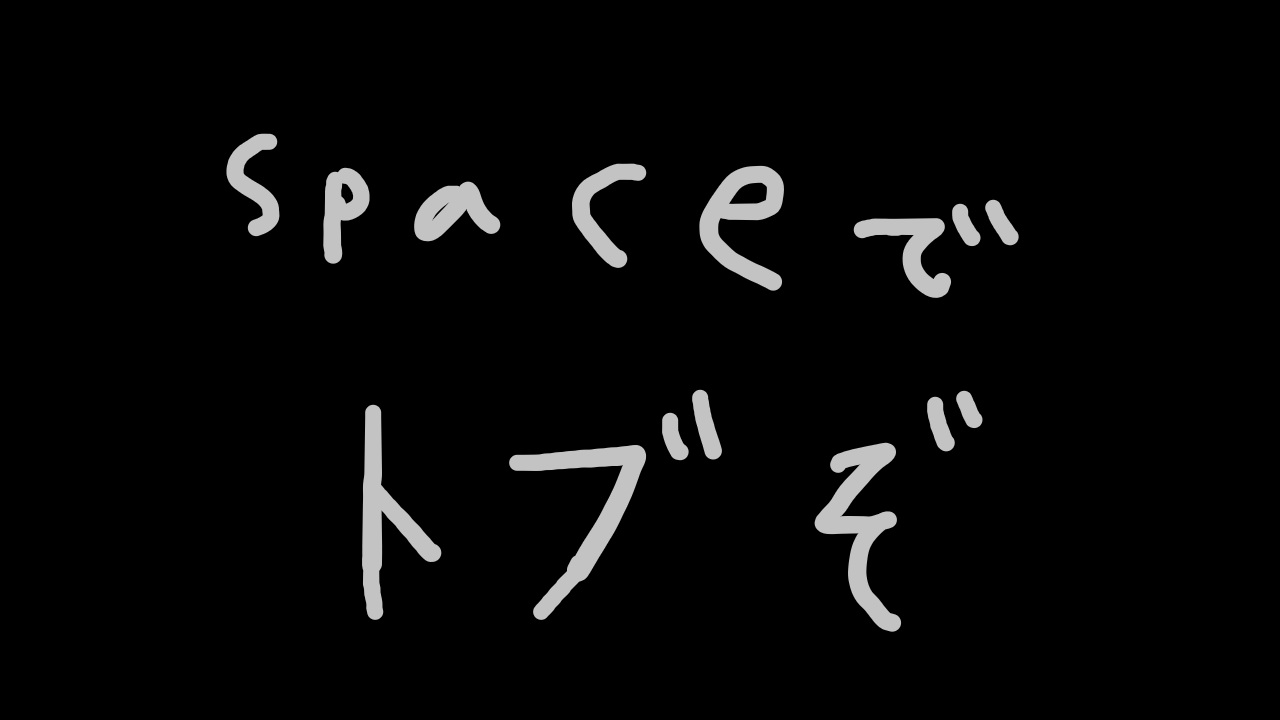 spaceで
トブぞ